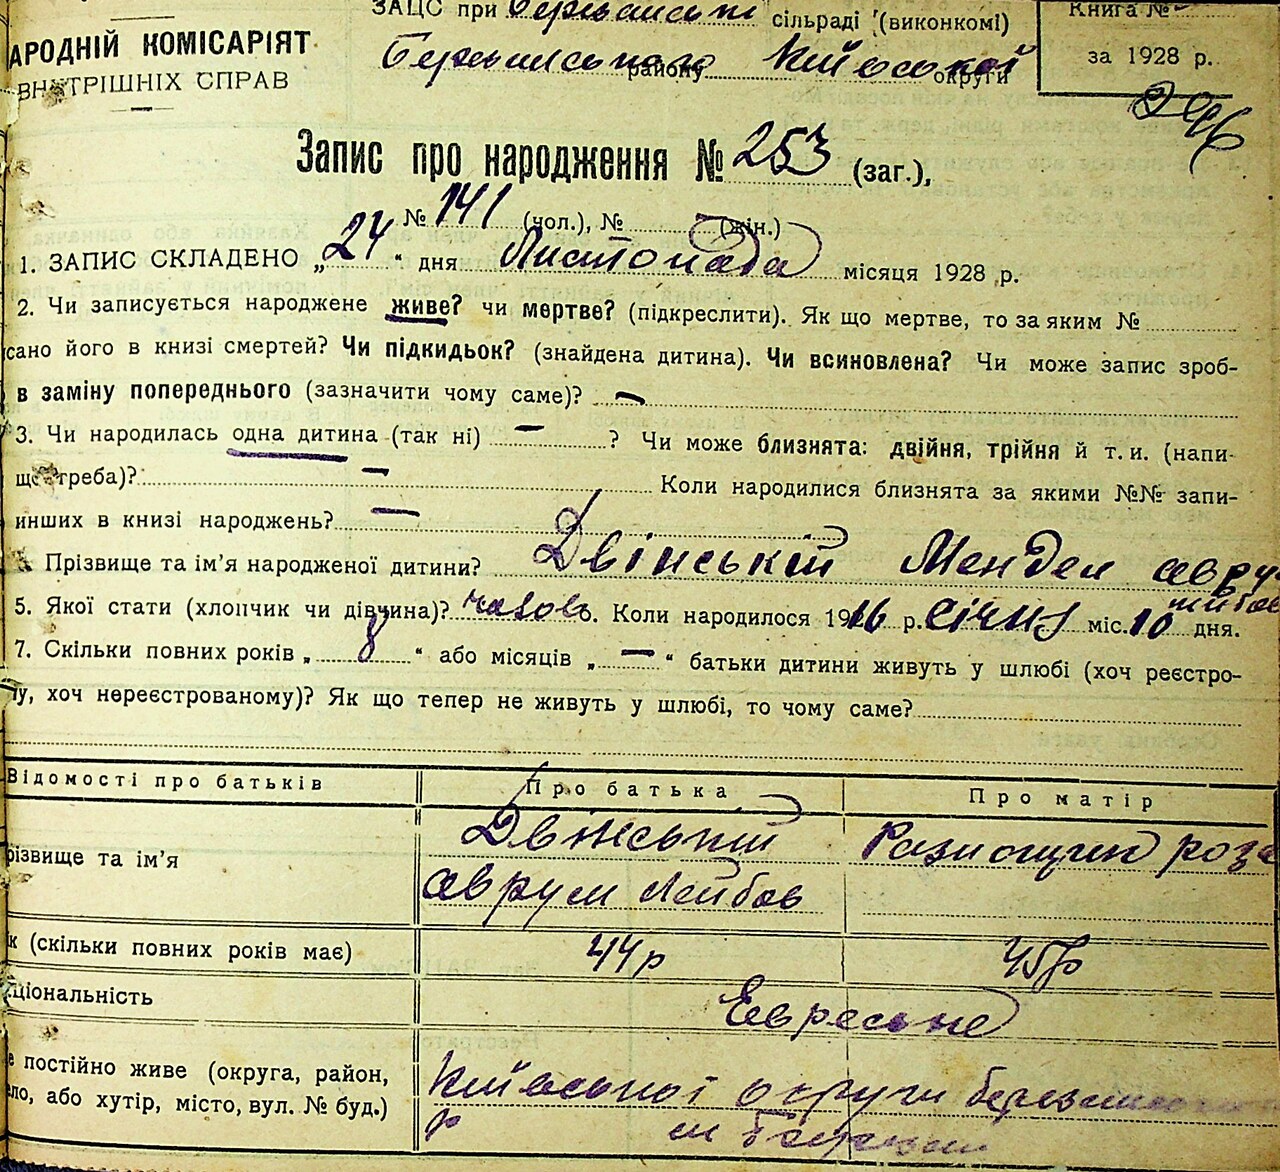 ЗАЦС при сільраді (виконкомі)
Книга №
АРОДНІЙ КОМІСАРІЯТ
ВНУТРІШНІХ СПРАВ
району Київської округи
за 1928 р.
296
Запис про народження № 253 (заг.),
№ 141 (чол.), № (жін.)
1. ЗАПИС СКЛАДЕНО „24“ дня Листопада місяця 1928 р.
2. Чи записується народжене живе? чи мертве? (підкреслити). Як що мертве, то за яким №
сано його в книзі смертей? Чи підкидьок? (знайдена дитина). Чи всиновлена? Чи може запис зроб-
в заміну попереднього (зазначити чому саме)? —
3. Чи народилась одна дитина (так ні) — ? Чи може близнята: двійня, трійня й т. и. (напи-
що треба)? — Коли народилися близнята за якими №№ запи-
инших в книзі народжень? —
Прізвище та ім'я народженої дитини? Двінський Мендел Авру
5. Якої стати (хлопчик чи дівчина)? чолов 6. Коли народилося 1916 р. січня міс. 10 дня.
7. Скільки повних років „8“ або місяців „—“ батьки дитини живуть у шлюбі (хоч реєстро-
у, хоч нереєстрованому)? Як що тепер не живуть у шлюбі, то чому саме?
Відомості про батьків Про батька Про матір
різвище та ім'я Двінський Роза
Аврум Лейбов
к (скільки повних років має) 44 р 45 р
ціональність Евреське
е постійно живе (округа, район,
ело, або хутір, місто, вул. № буд.) Київської округи
р м